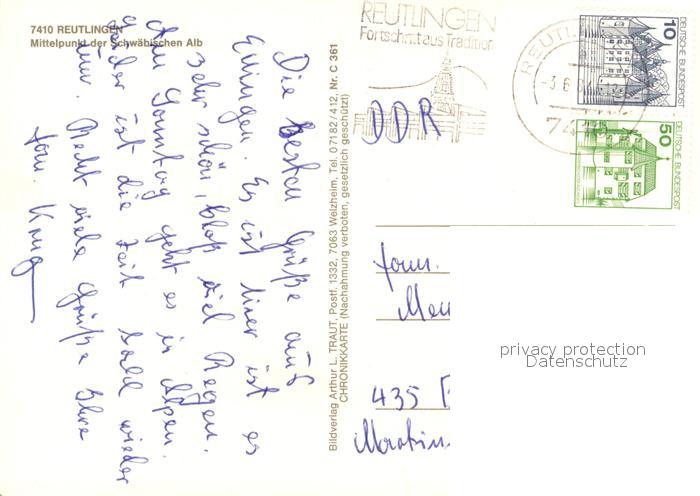 7410 REUTLINGEN
Mittelpunkt der Schwäbischen Alb
Die besten Grüße aus
Eningen. Es ist hier ist es
sehr schön, bloß viel Regen.
Am Sonntag geht es in Alpen.
leider ist die Zeit bald wieder
um. Recht viele Grüße Ihre
Fam. Krug
Bildverlag Arthur L. TRAUT, Postf. 1332, 7063 Welzheim, Tel. 07182/412, Nr. C 361
CHRONIKKARTE (Nachahmung verboten, gesetzlich geschützt)
REUTLINGEN
Fortschritt aus Tradition
REUTL
-3.6.8
74
10
DEUTSCHE BUNDESPOST
50
DEUTSCHE BUNDESPOST
DDR
Fam.
435
privacy protection
Datenschutz